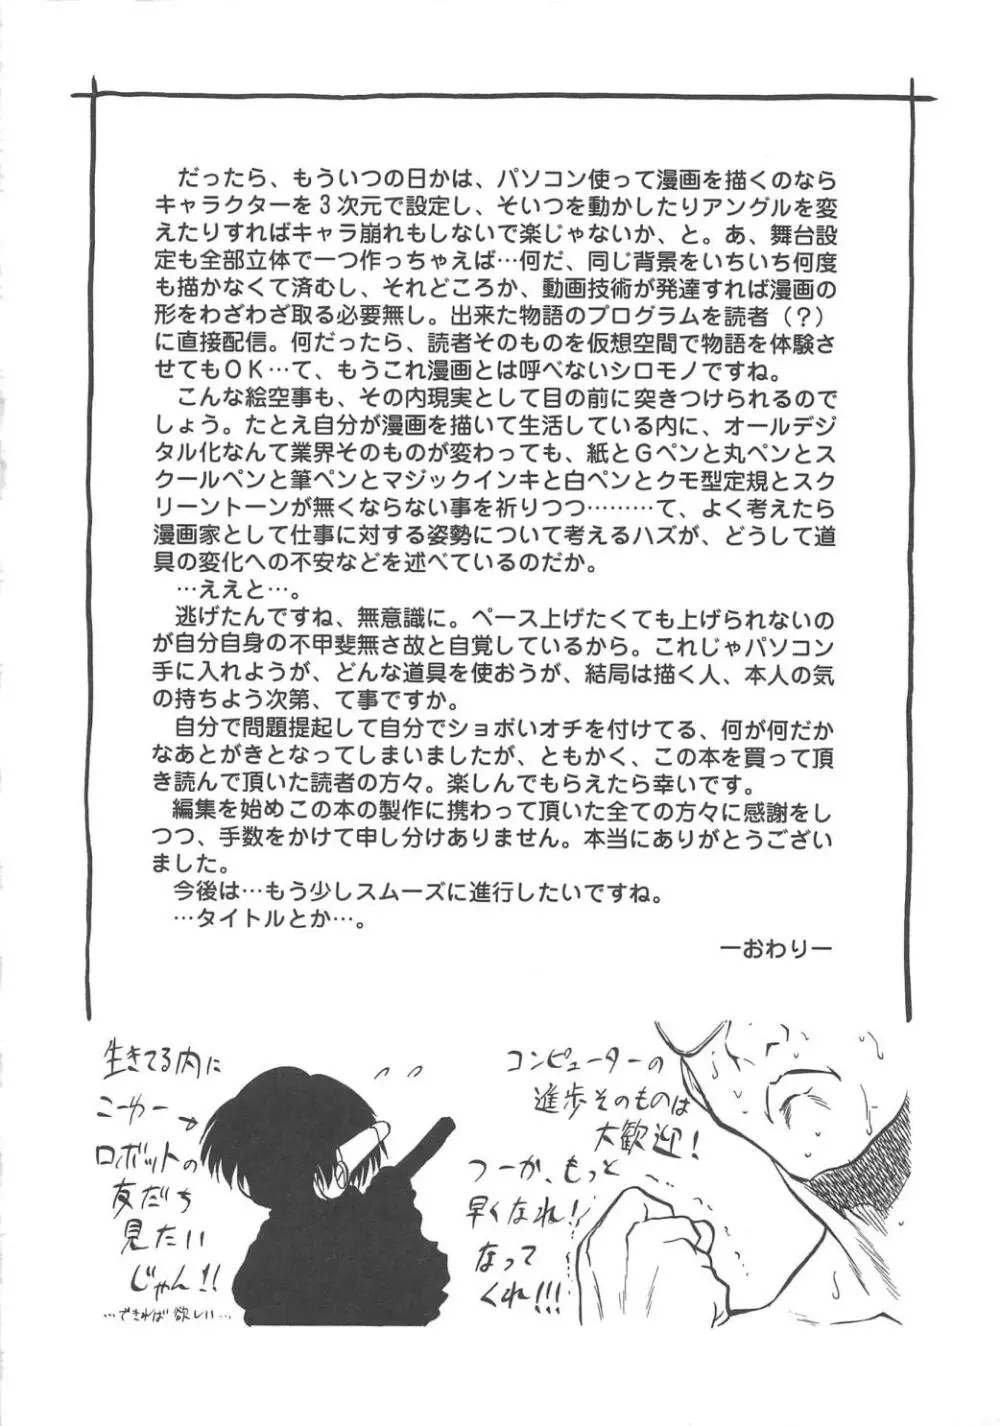 だったら、もういつの日かは、パソコン使って漫画を描くのなら
キャラクターを3次元で設定し、そいつを動かしたりアングルを変
えたりすればキャラ崩れもしないで楽じゃないか、と。あ、舞台設
定も全部立体で一つ作っちゃえば…何だ、同じ背景をいちいち何度
も描かなくて済むし、それどころか、動画技術が発達すれば漫画の
形をわざわざ取る必要無し。出来た物語のプログラムを読者（？）
に直接配信。何だったら、読者そのものを仮想空間で物語を体験さ
せてもOK…て、もうこれ漫画とは呼べないシロモノですね。
こんな絵空事も、その内現実として目の前に突きつけられるので
しょう。たとえ自分が漫画を描いて生活している内に、オールデジ
タル化なんて業界そのものが変わっても、紙とGペンと丸ペンとス
クールペンと筆ペンとマジックインキと白ペンとクモ型定規とスク
リーントーンが無くならない事を祈りつつ………て、よく考えたら
漫画家として仕事に対する姿勢について考えるハズが、どうして道
具の変化への不安などを述べているのだか。
…ええと…。
逃げたんですね、無意識に。ペース上げたくても上げられないの
が自分自身の不甲斐無さ故と自覚しているから。これじゃパソコン
手に入れようが、どんな道具を使おうが、結局は描く人、本人の気
の持ちよう次第、て事ですか。
自分で問題提起して自分でショボいオチを付けてる、何が何だか
なあとがきとなってしまいましたが、ともかく、この本を買って頂
き読んで頂いた読者の方々。楽しんでもらえたら幸いです。
編集を始めこの本の製作に携わって頂いた全ての方々に感謝をし
つつ、手数をかけて申し分けありません。本当にありがとうござい
ました。
今後は…もう少しスムーズに進行したいですね。
…タイトルとか…。
ーおわりー
コンピューターの
進歩そのものは
大歓迎！
つーか、もっと
早くなれ！
なって
くれ!!!
生きてる内に
こーゆー→
ロボットの
友だち
見たい
じゃん!!
…できれば欲しい…